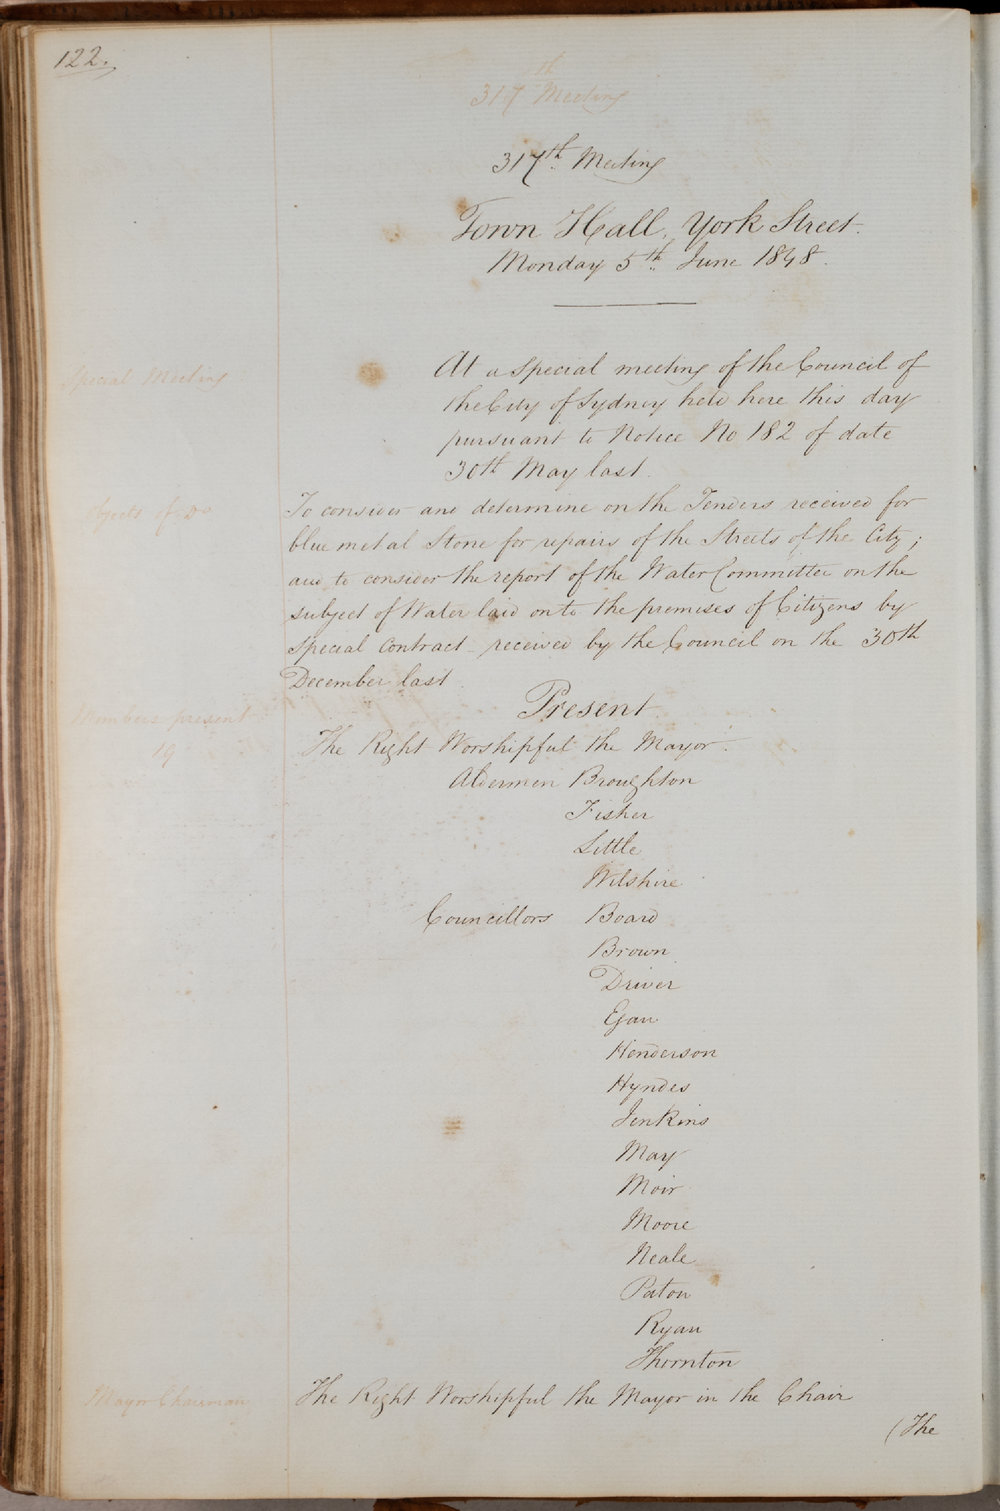 122.
317th Meeting
317th Meeting
Town Hall, York Street.
Monday 5th June 1848.
Special Meeting
At a special meeting of the Council of
the City of Sydney held here this day
pursuant to Notice No 182 of date
30th May last.
Objects of Do
To consider and determine on the Tenders received for
blue metal Stone for repairs of the Streets of the City;
and to consider the report of the Water Committee on the
subject of Water laid on to the premises of Citizens by
special contract received by the Council on the 30th
December last.
Present.
Members present
19
The Right Worshipful the Mayor.
Aldermen Broughton
Fisher
Little
Wilshire
Councillors Board
Brown
Driver
Egan
Henderson
Hyndes
Jenkins
May
Moir
Moore
Neale
Paton
Ryan
Thornton
Mayor Chairman
The Right Worshipful the Mayor in the Chair
(The